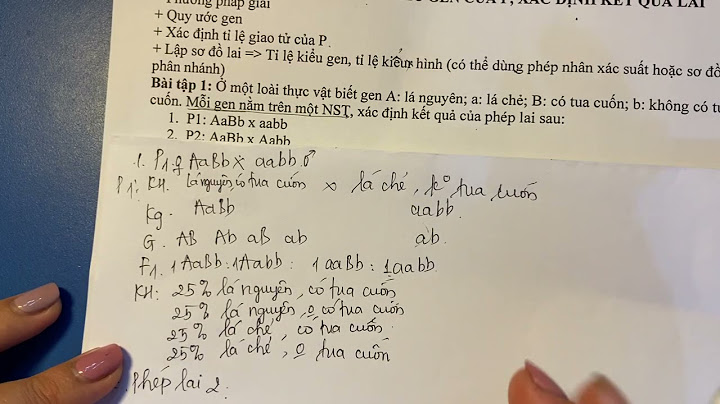 Phương pháp giải
GEN CỦA P, XÁC ĐỊNH KẾT QUẢ LAI
+ Quy ước gen
+ Xác định tỉ lệ giao tử của P
+ Lập sơ đồ lai => Tỉ lệ kiểu gen, tỉ lệ kiểu hình (có thể dùng phép nhân xác suất hoặc sơ đồ
phân nhánh)
Bài tập 1: Ở một loài thực vật biết gen A: lá nguyên; a: lá chẻ; B: có tua cuốn; b: không có
cuốn. Mỗi gen nằm trên một NST, xác định kết quả của phép lai sau:
1. P1: AaBb x aabb
2. P2: AaBb x Aabb
1. P1 ♀ AaBb x aabb ♂
P1: KH. lá nguyên, có tua cuốn x lá chẻ, k° tua cuốn
Kg. AaBb aabb.
G. AB Ab aB ab ab.
F1. 1AaBb : 1Aabb : 1aaBb : 1aabb
KH: 25% lá nguyên, có tua cuốn
25% lá nguyên, 0 có tua cuốn
25% lá chẻ, có tua cuốn.
25% lá chẻ, 0 tua cuốn
Phép lai 2: